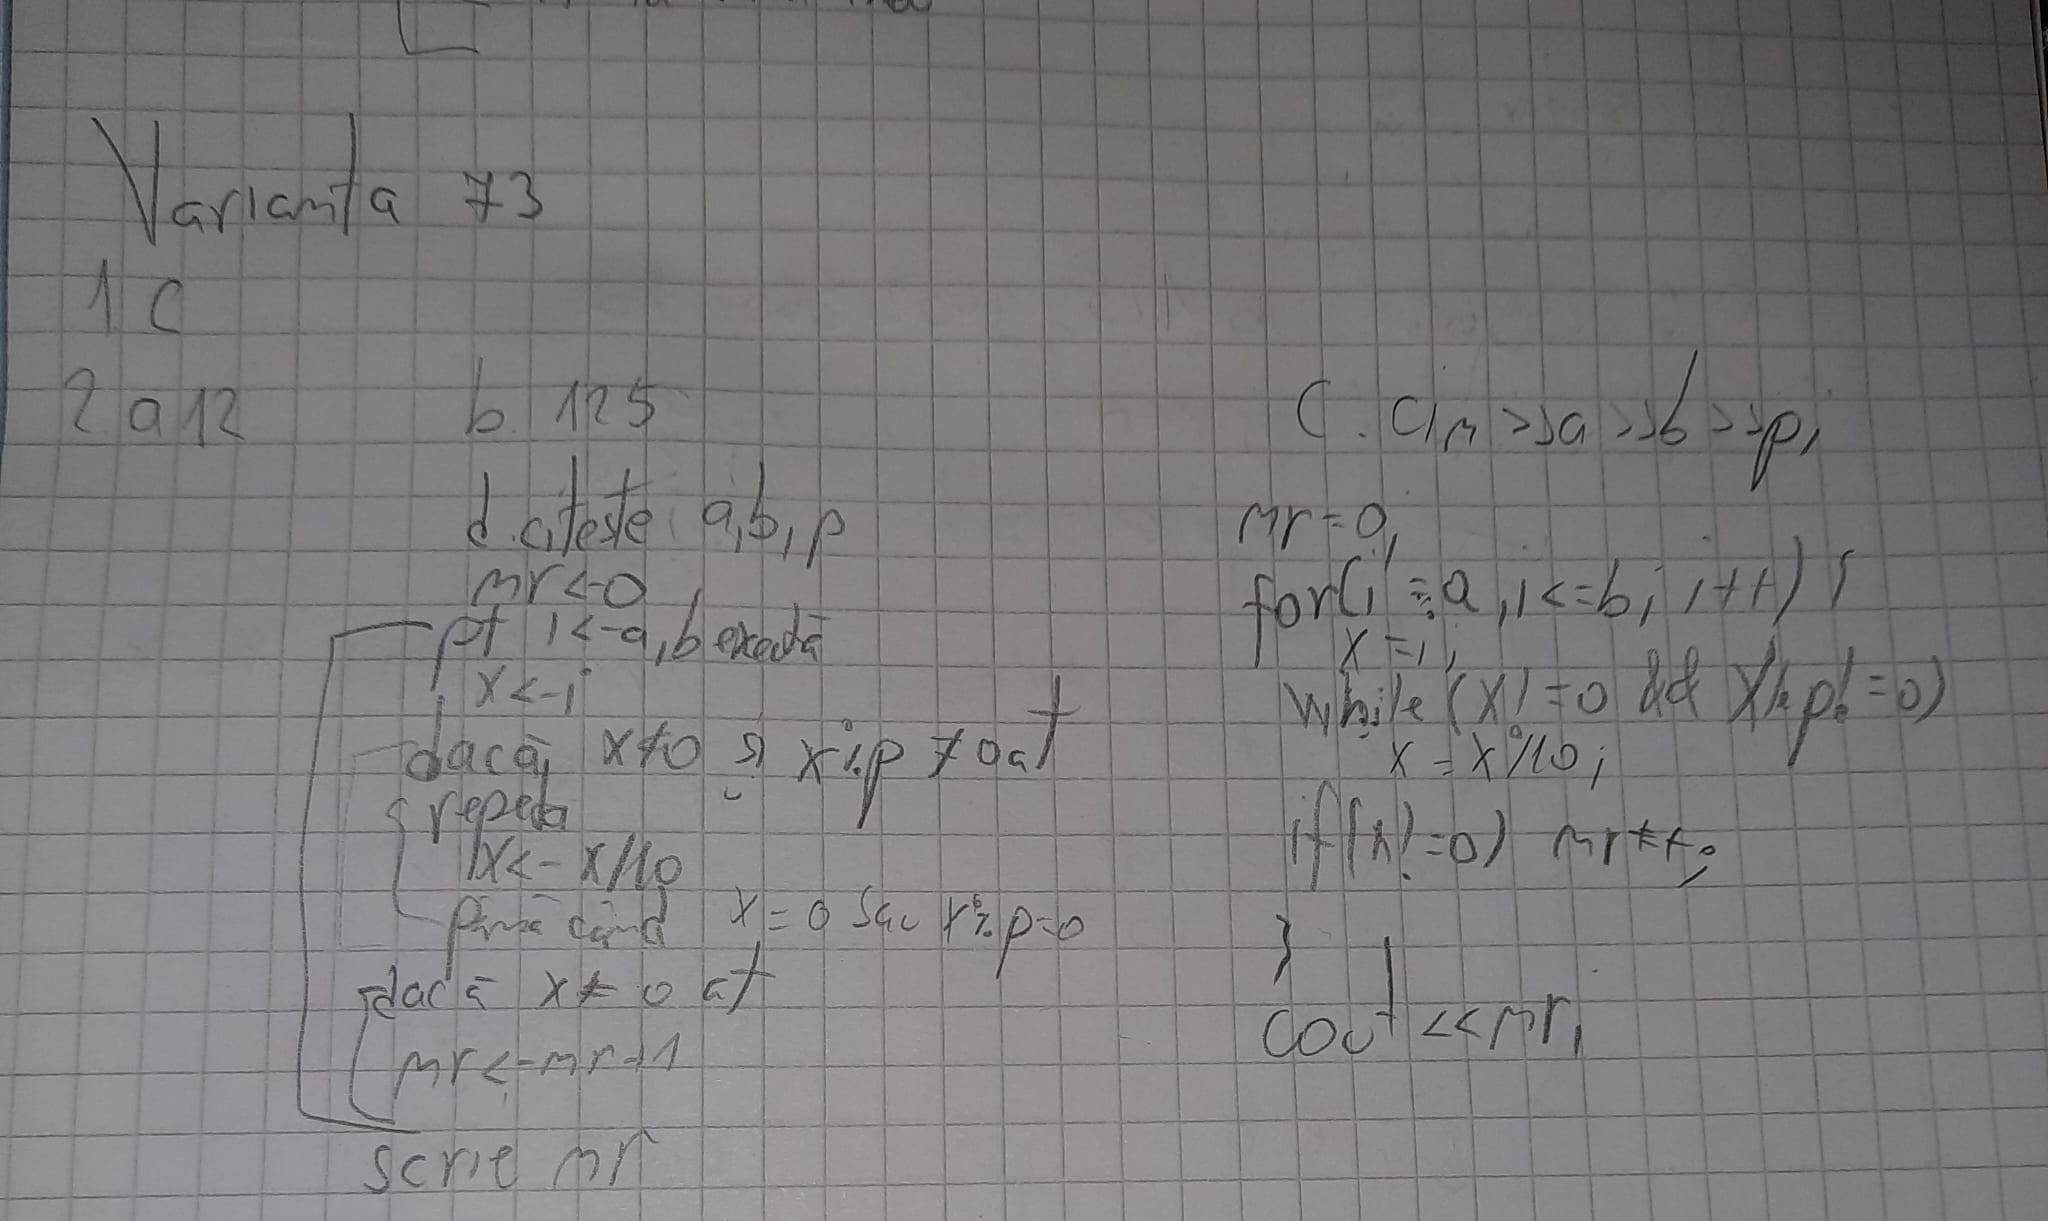 Varianta 73
1 C
2 a 12
b. 125
d. citeste a, b, p
nr <- 0
pt i <- a, b execută
x <- i
dacă x ≠ 0 și x % p ≠ 0 at
repetă
x <- x/10
până când x = 0 sau x % p = 0
dacă x ≠ 0 at
nr <- nr + 1
scrie nr
C. cin >> a >> b >> p;
nr = 0;
for(i = a; i <= b; i++) {
x = i;
while (x != 0 && x % p != 0)
x = x % 10;
if (x != 0) nr++;
}
cout << nr;